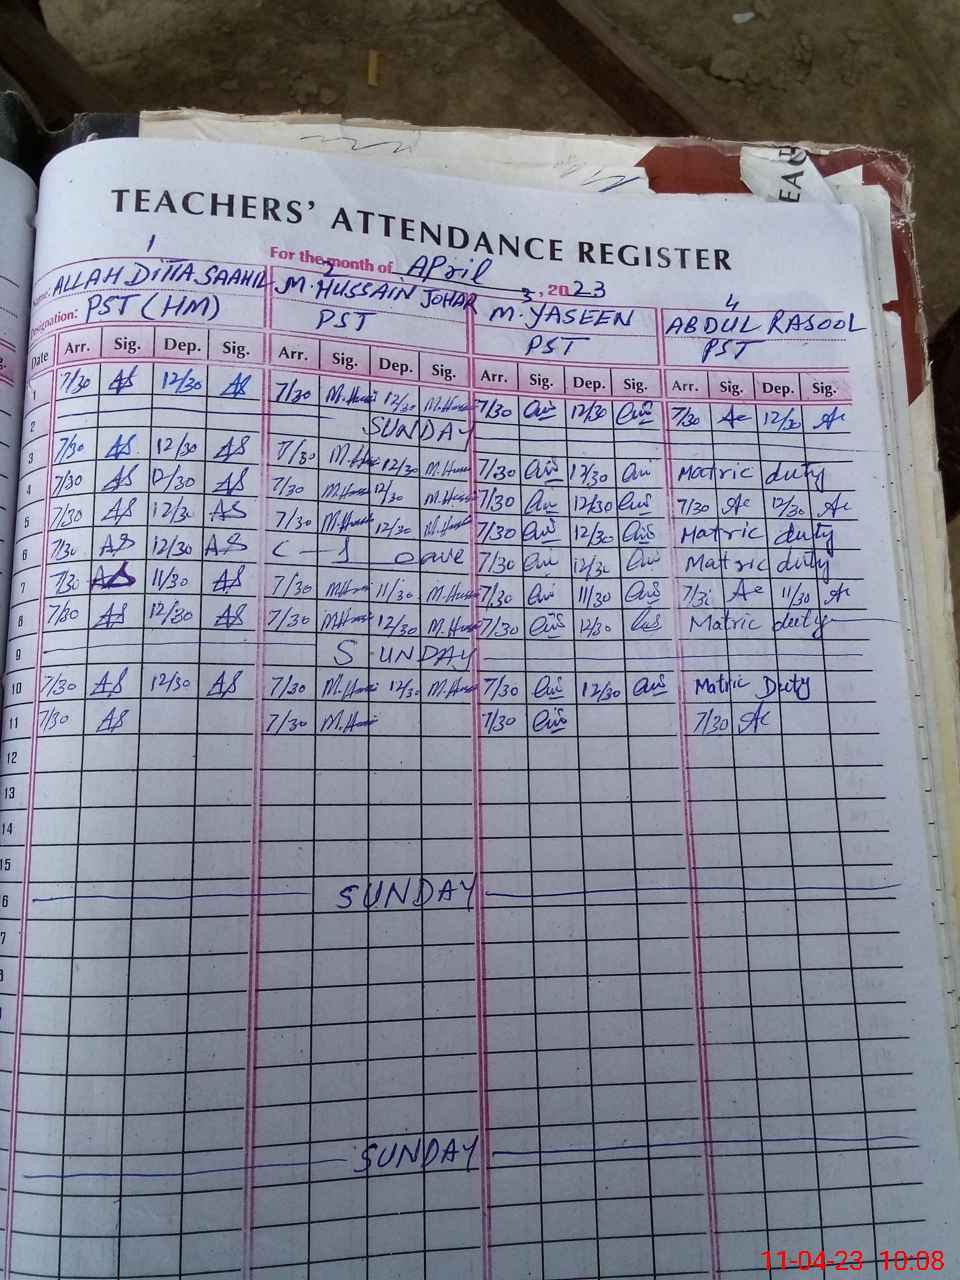 TEACHERS' ATTENDANCE REGISTER
For the month of April, 2023
1 2 3 4
Name: ALLAH DITTA SAAHIL M. HUSSAIN JOHAR M. YASEEN ABDUL RASOOL
Designation: PST (HM) PST PST PST
Date Arr. Sig. Dep. Sig. Arr. Sig. Dep. Sig. Arr. Sig. Dep. Sig. Arr. Sig. Dep. Sig.
1 7/30 AS 12/30 AS 7/30 12/30 7/30 12/30 7/30 12/30
2 SUNDAY
3 7/30 AS 12/30 AS 7/30 12/30 7/30 12/30 Matric duty
4 7/30 AS 12/30 AS 7/30 12/30 7/30 12/30 7/30 12/30
5 7/30 AS 12/30 AS 7/30 12/30 7/30 12/30 Matric duty
6 7/30 AS 12/30 AS 7/30 12/30 Matric duty
7 7/30 AS 11/30 AS 7/30 11/30 7/30 11/30 7/30 11/30
8 7/30 AS 12/30 AS 7/30 12/30 7/30 12/30 Matric duty
9 SUNDAY
10 7/30 AS 12/30 AS 7/30 12/30 7/30 12/30 Matric Duty
11 7/30 AS 7/30 7/30 7/30
12
13
14
15
6 SUNDAY
7
SUNDAY
11-04-23 10:08